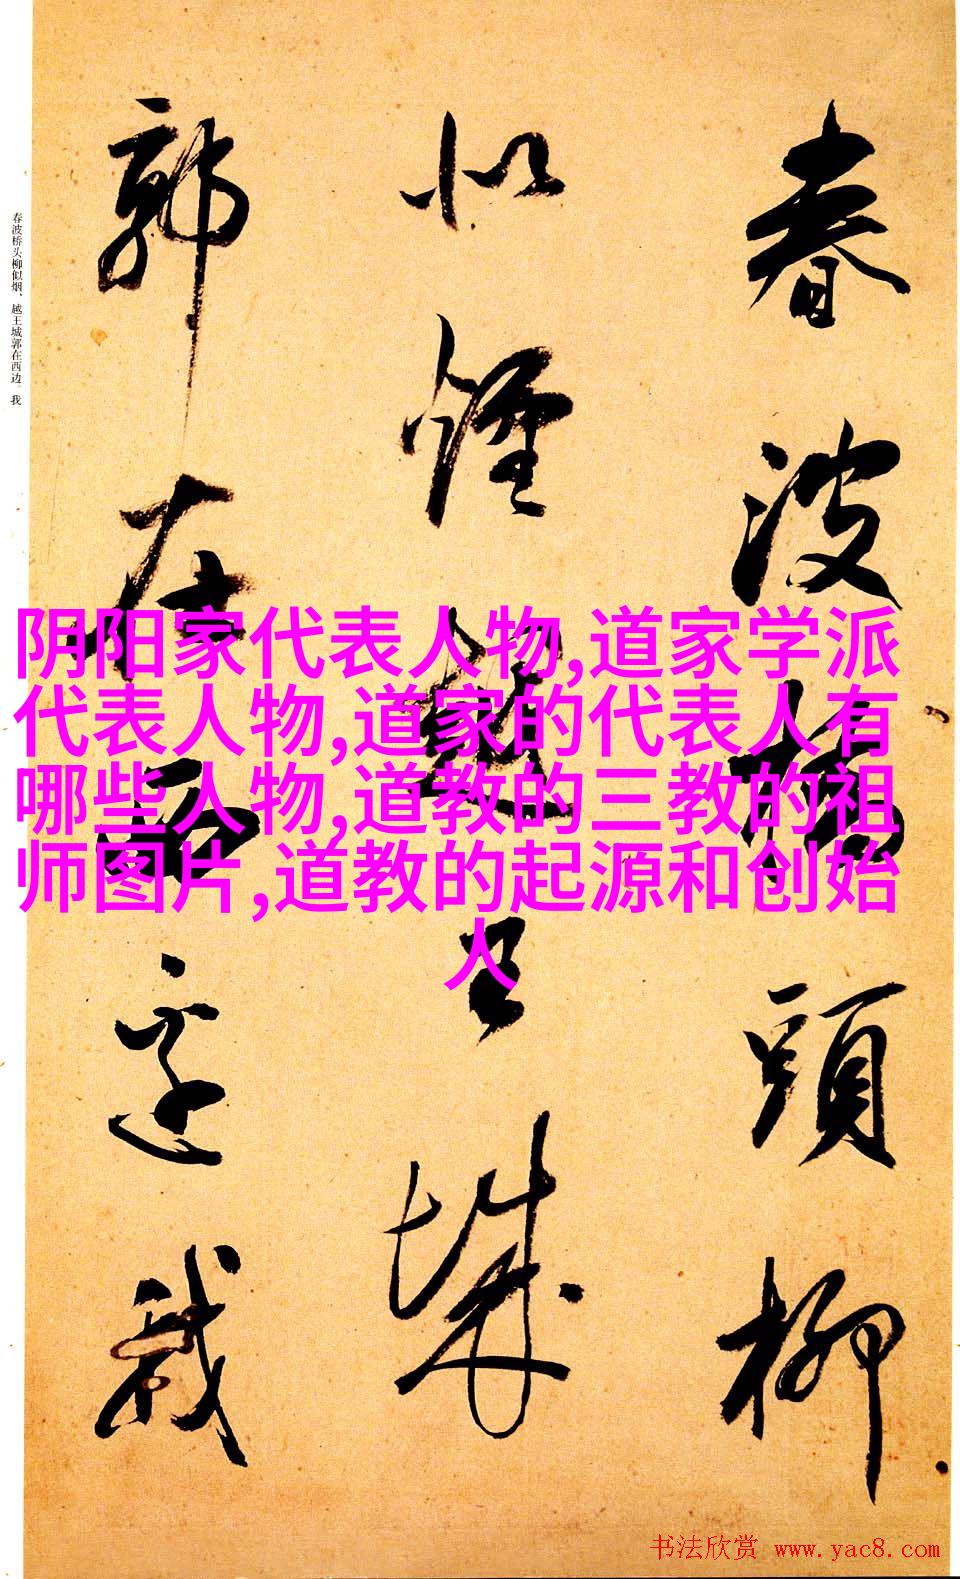 春波橋頭柳
似煙越王城
郭在西邊我
春波桥头柳似烟、越王城郭在西边。我
阴阳家代表人物,道家学派
代表人物,道家的代表人有
哪些人物,道教的三教的祖
师图片,道教的起源和创始
人
书法欣赏 www.yac8.com